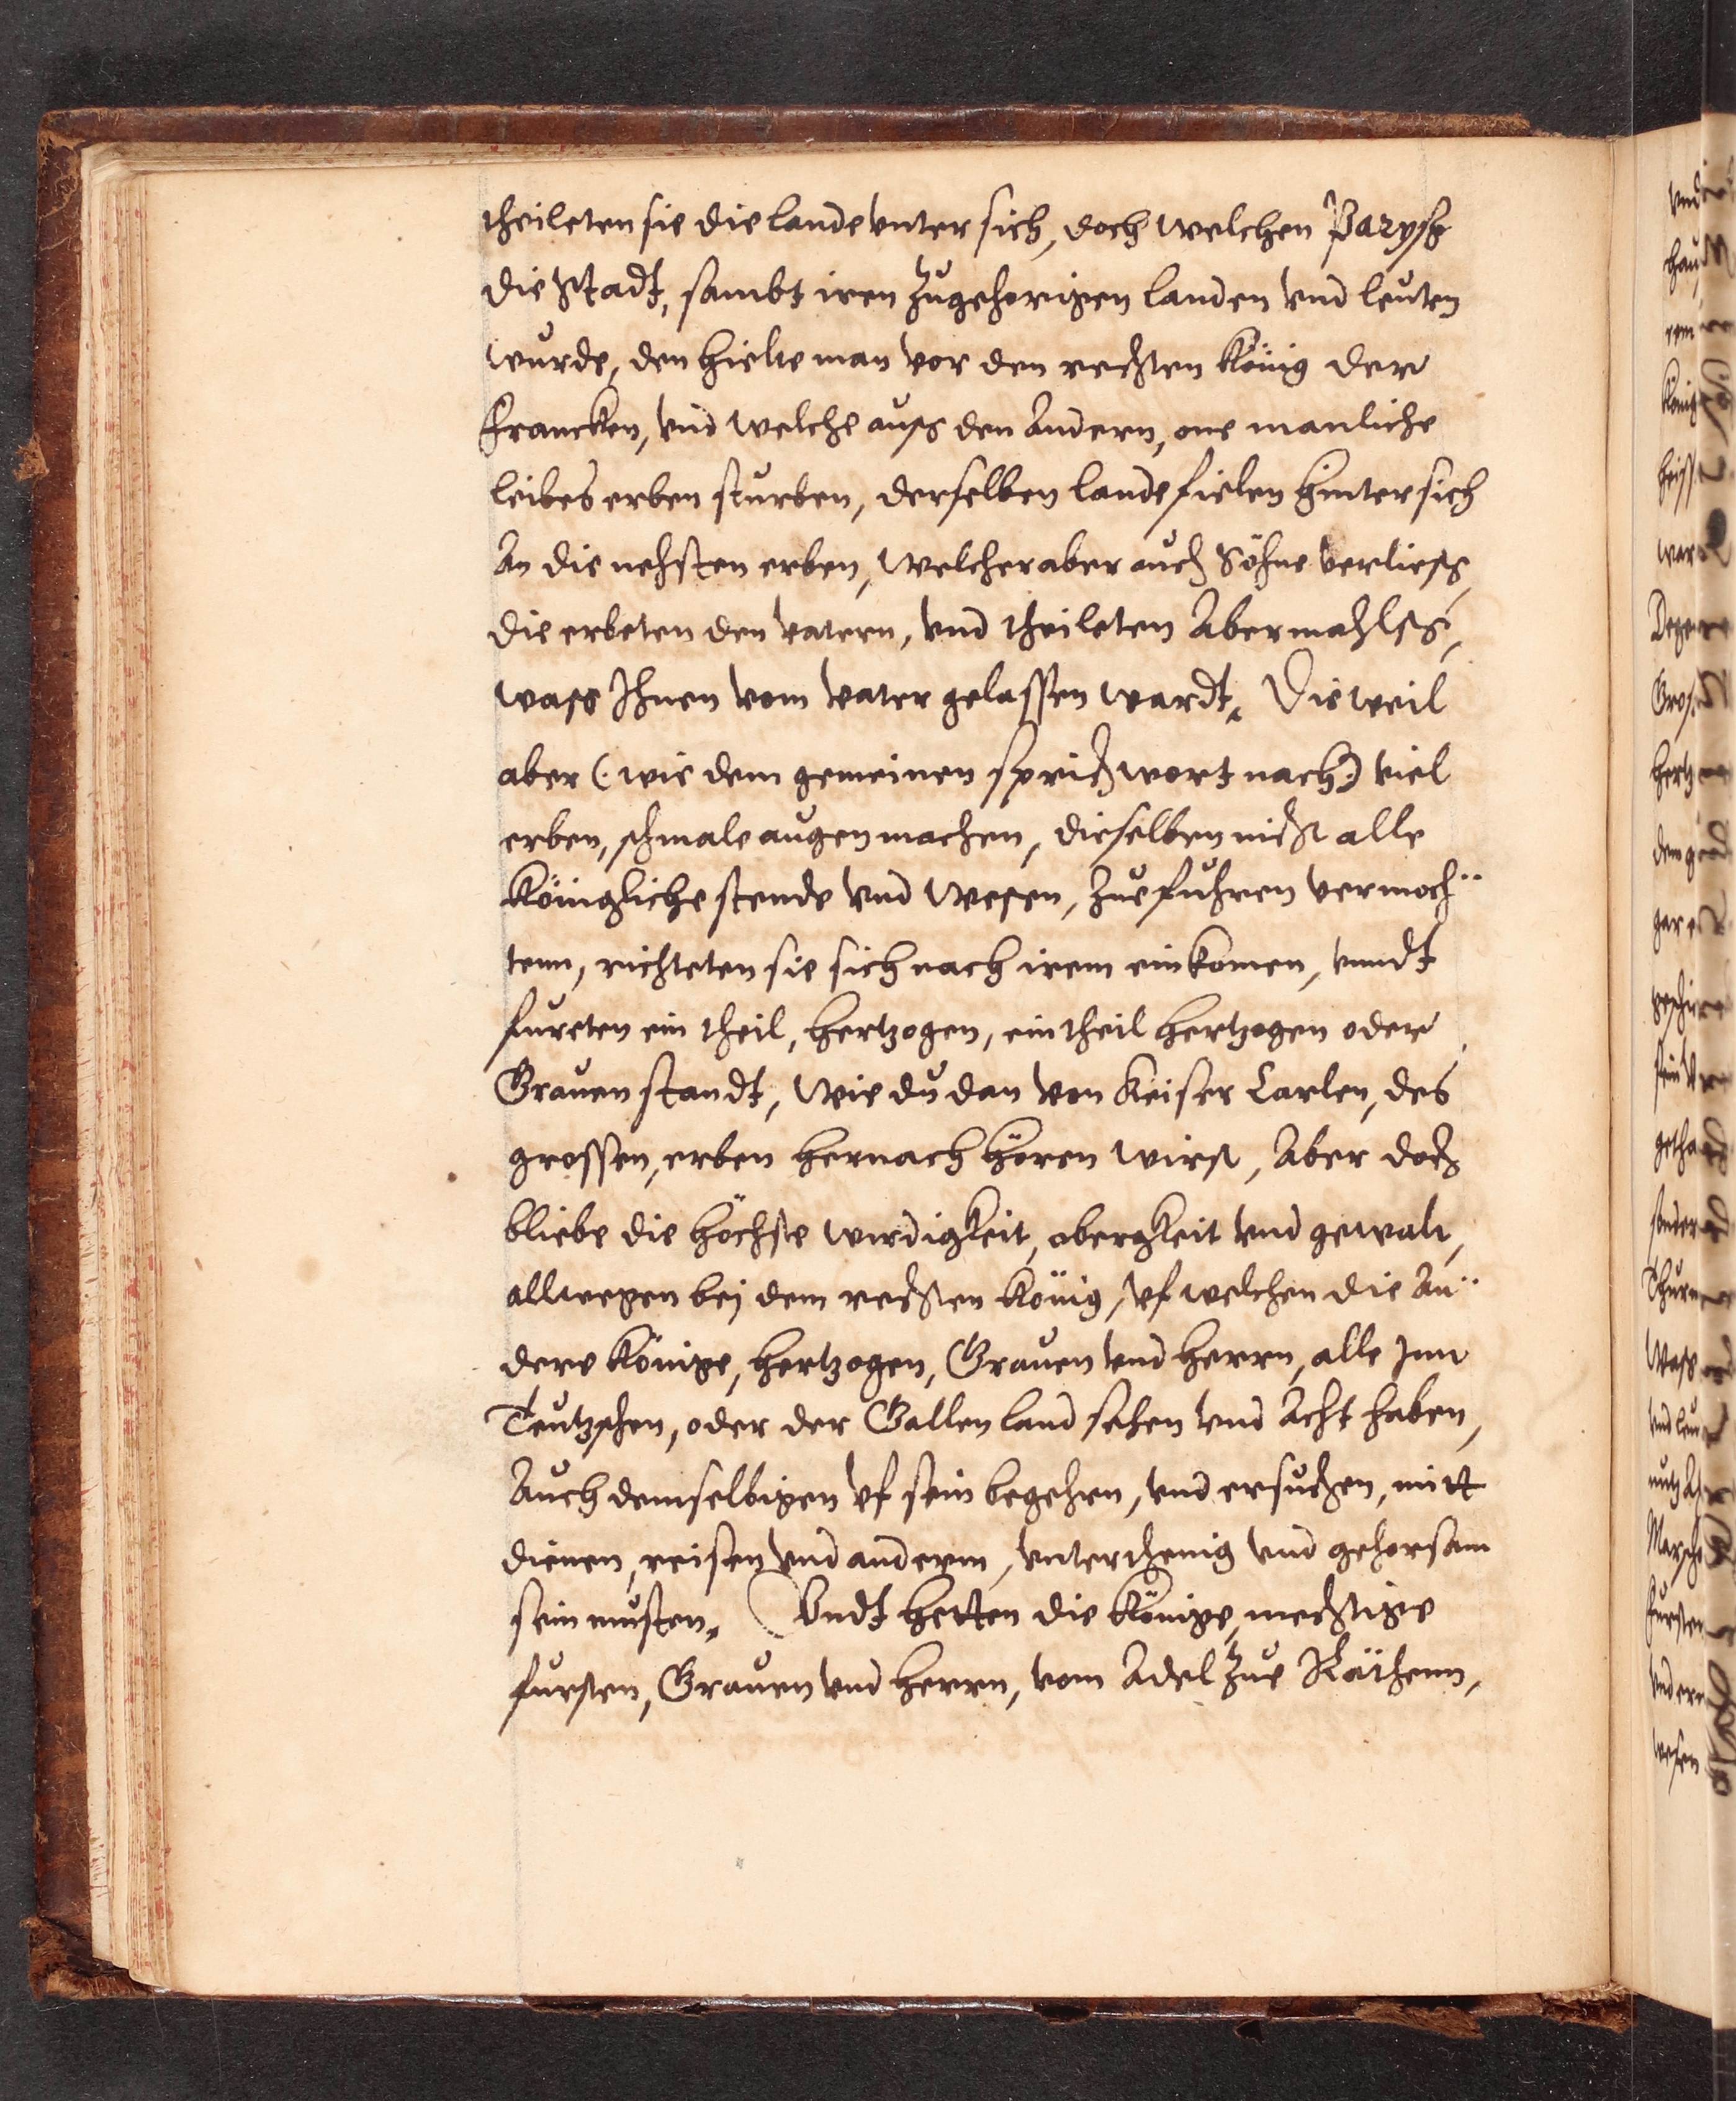 theileten sie die lande vnter sich, doch welchen Parysß
die Stadt, sambt iren zugehorigen landen vnd leuten
wurde, den hielte man vor den rechten König der
Francken, vnd welche auss den Andern, one manliche
leibes erben sturben, derselben lande fielen hinter sich
An die nehsten erben, welcher aber auch Söhne verliess,
die erbeten den vatern, vnd theileten Abermahlss,
wass Ihnen vom vater gelassen wardt. Die weil
aber (: wie dem gemeinen sprichwort nach :) viel
erben, schmale augen machen, dieselben nicht alle
Königliche stende vnd wesen, zue fuhren vermoch¨
tenn, richteten sie sich nach irem einkomen, vnndt
fureten ein theil, hertzogen, ein theil hertzogen oder
Grauen standt, wie du dan von Keiser Carlen, des
grossen, erben hernach hören wirst, Aber doch
bliebe die höchste wirdigkeit, obergkeit vnd gewalt,
allwegen bej dem rechten König, vf welchen die An¨
dere Könige, hertzogen, Grauen vnd herrn, alle Jnn
Teutzschen, oder der Gallen land sehen vnd Acht haben,
Auch demselbigen vf sein begehrn, vnd ersuchen, mitt
dienen, reisen vnd anderm, vnterthenig vnd gehorsam
sein musten. Vndt hetten die Könige, mechtige
fursten, Grauen vnd herrn, vom Adel zue Räthenn,